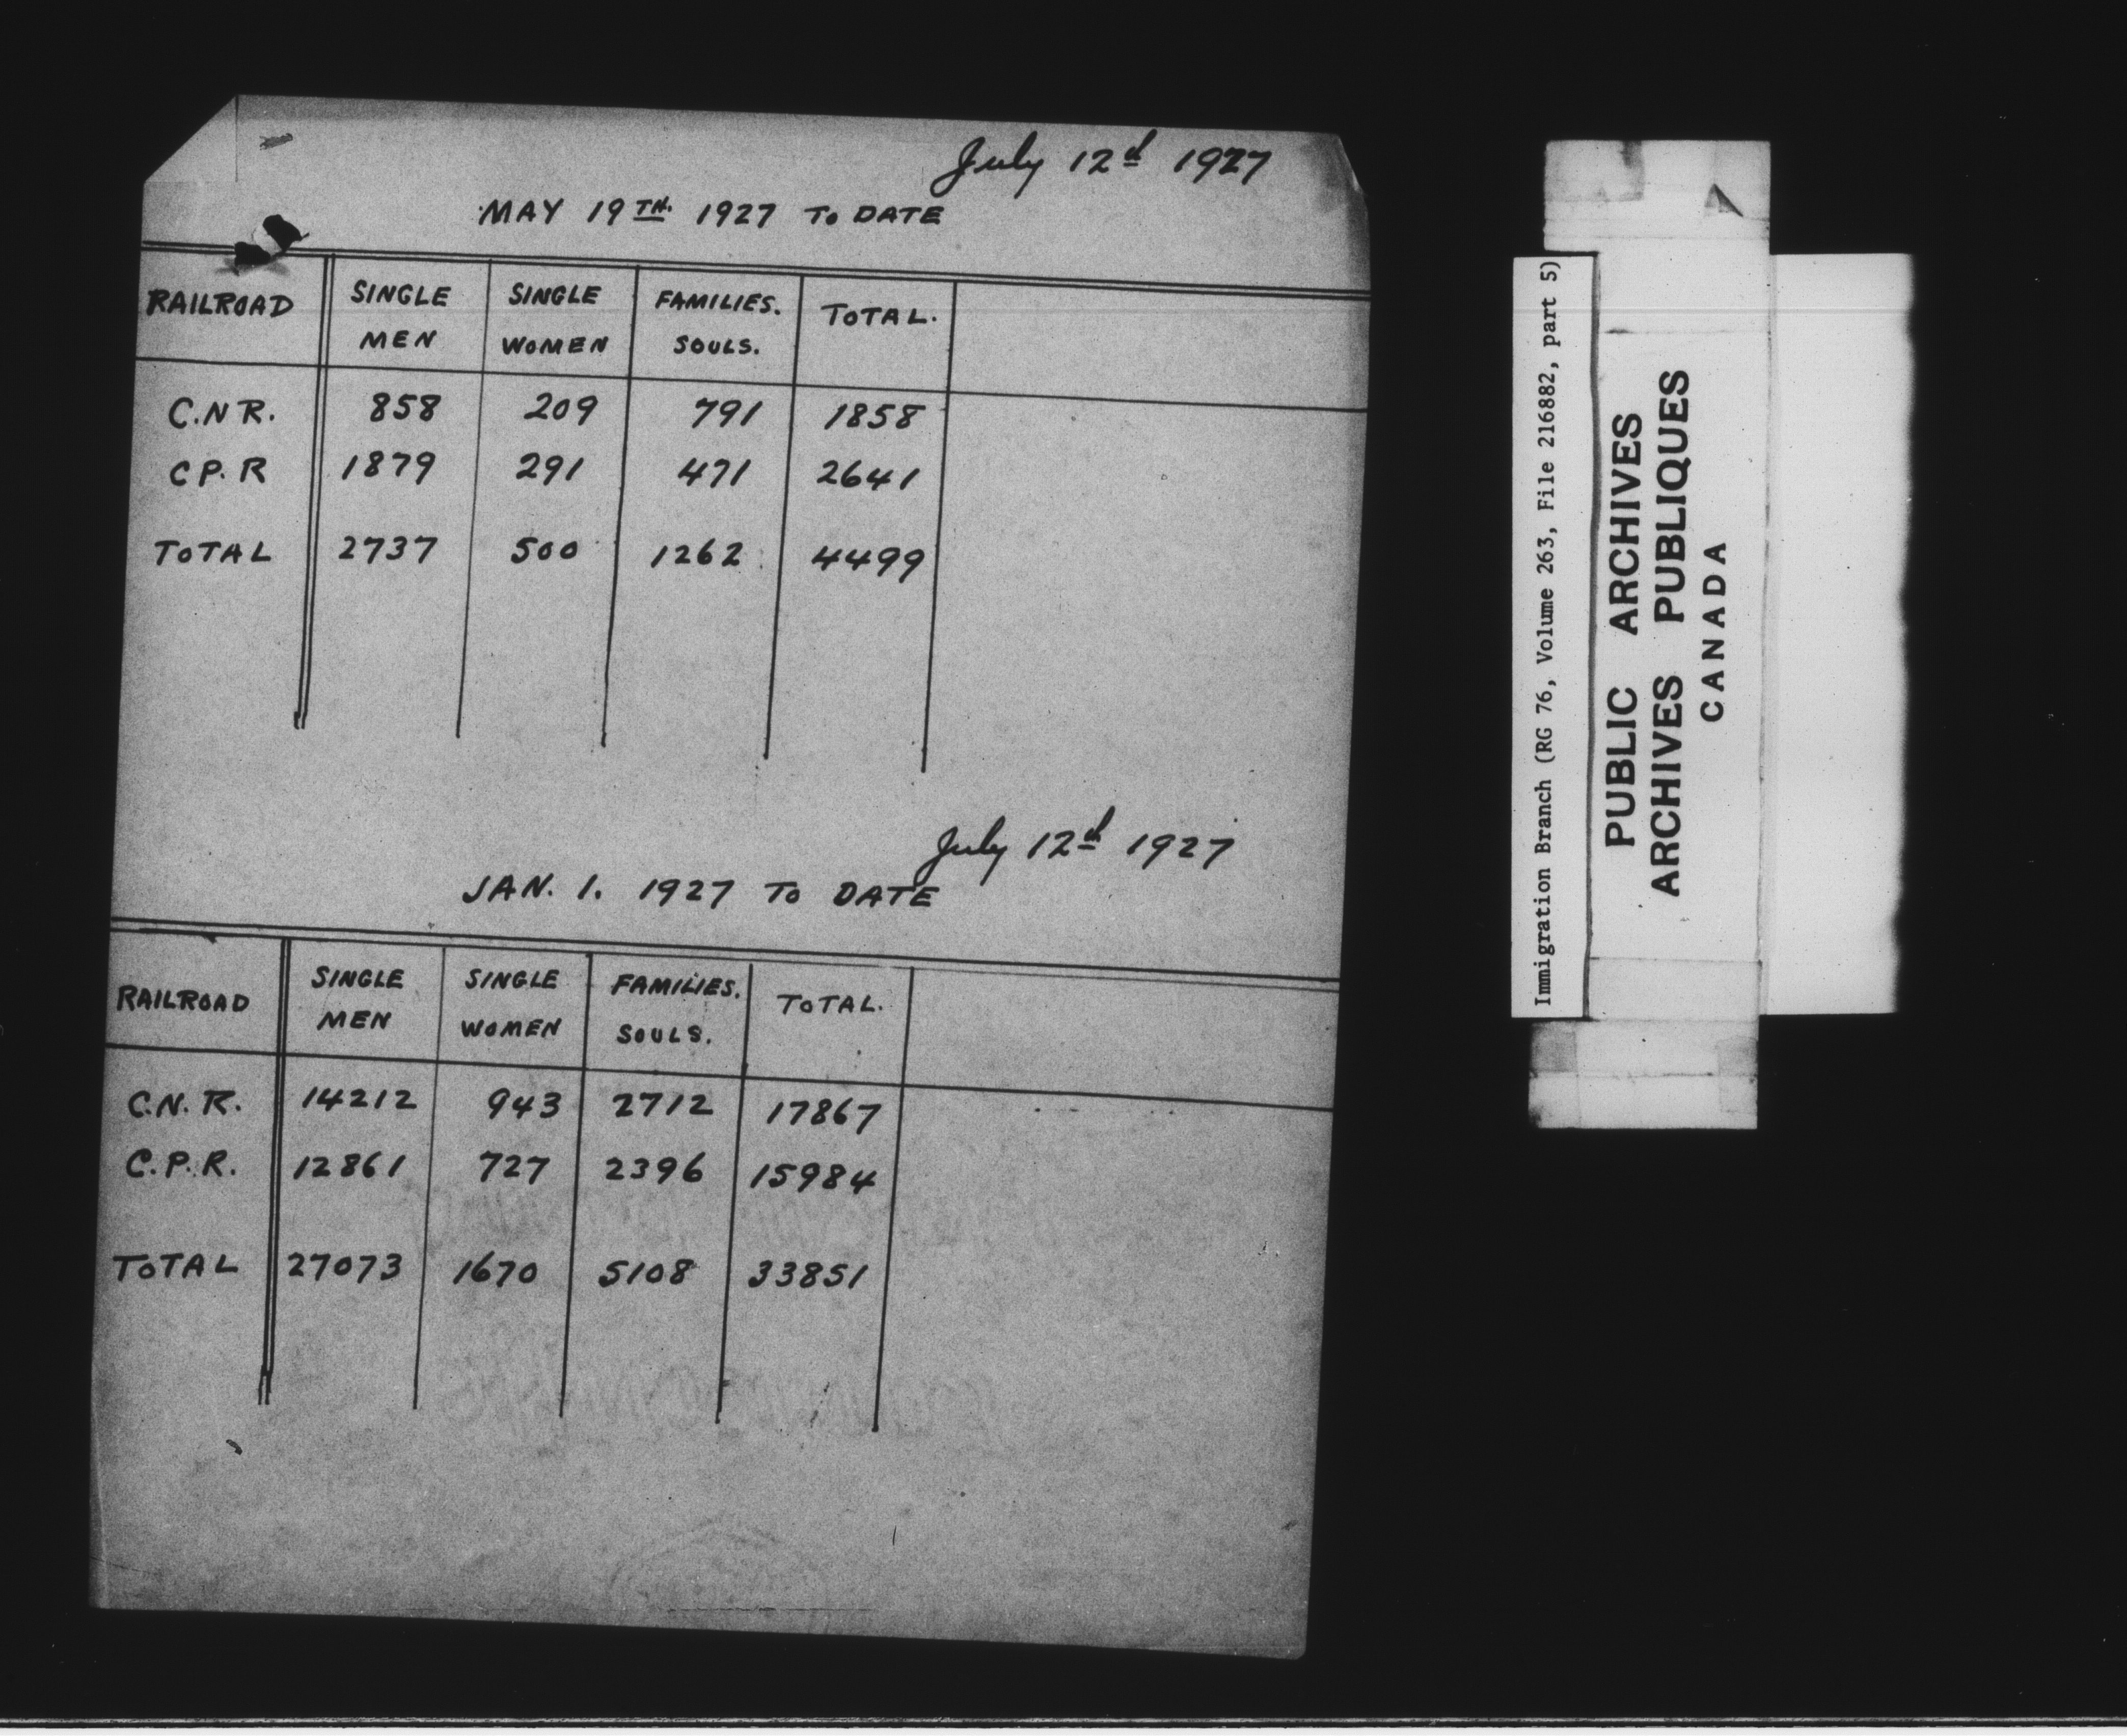 July 12th 1927
MAY 19TH. 1927 TO DATE
RAILROAD SINGLE MEN SINGLE WOMEN FAMILIES. SOULS. TOTAL.
C.N R. 858 209 791 1858
C P. R 1879 291 471 2641
TOTAL 2737 500 1262 4499
July 12th 1927
JAN. 1. 1927 TO DATE
RAILROAD SINGLE MEN SINGLE WOMEN FAMILIES. SOULS. TOTAL.
C.N. R. 14212 943 2712 17867
C.P.R. 12861 727 2396 15984
TOTAL 27073 1670 5108 33851
Immigration Branch (RG 76, Volume 263, File 216882, part 5)
PUBLIC ARCHIVES
ARCHIVES PUBLIQUES
CANADA